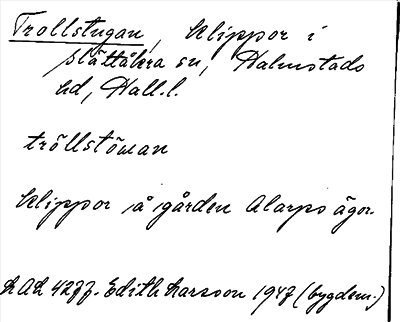 Trollstugan, klippor i
Slättåkra sn, Halmstads
hd, Hall.l.
tröllstöwan
Klippor å gården Alarps ägor.
LAL 4277. Edith Larsson 1947 (bygdem.)